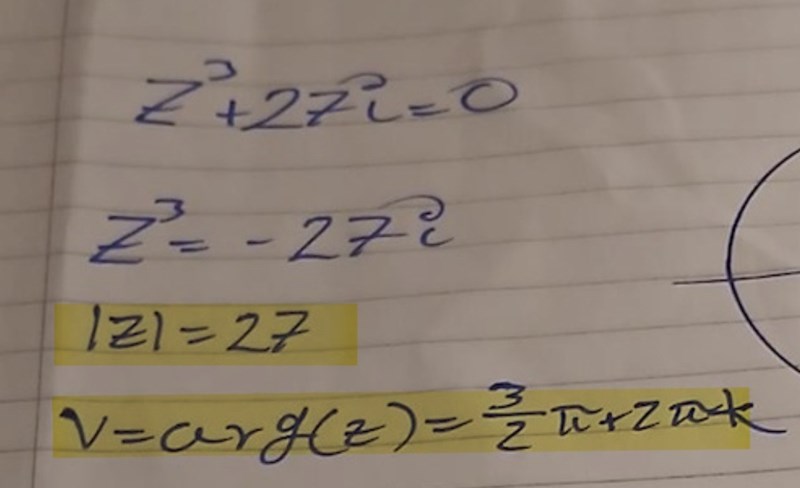 z³+27i=0
z³=-27i
|z|=27
v=arg(z)=3/2 π+2πk